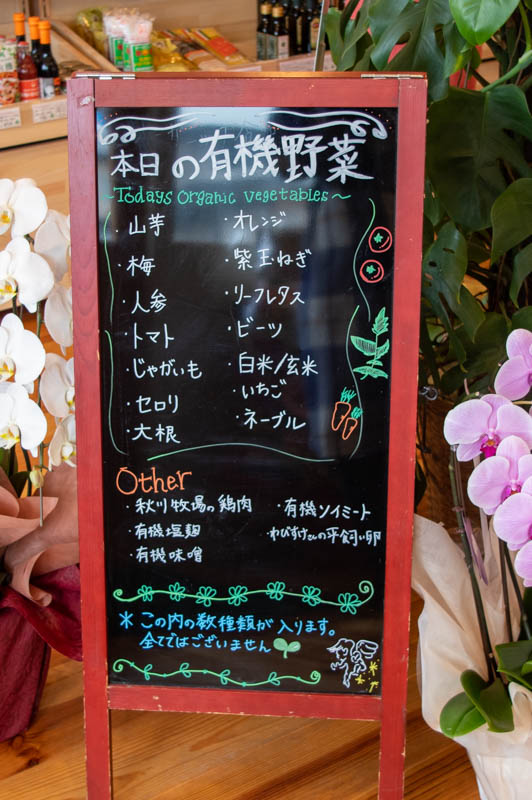 本日の有機野菜
~Todays organic vegetables~
・山芋
・梅
・人参
・トマト
・じゃがいも
・セロリ
・大根
・オレンジ
・紫玉ねぎ
・リーフレタス
・ビーツ
・白米/玄米
・いちご
・ネーブル
Other
・秋川牧場の鶏肉
・有機塩麹
・有機味噌
・有機ソイミート
・わびすけさんの平飼い卵
＊この内の数種類が入ります。
全てではございません